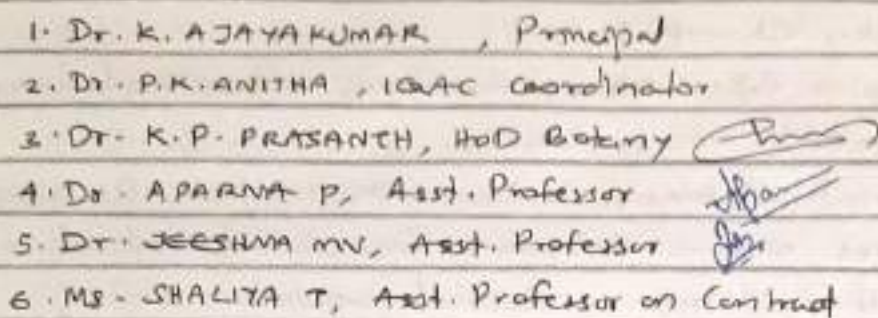 1. Dr. K. AJAYAKUMAR , Principal
2. Dr. P.K. ANITHA , IQAC Coordinator
3. Dr. K.P. PRASANTH, HoD Botany
4. Dr. APARNA P, Asst. Professor
5. Dr. JEESHMA MV, Asst. Professor
6. Ms. SHALIYA T, Asst. Professor on Contract